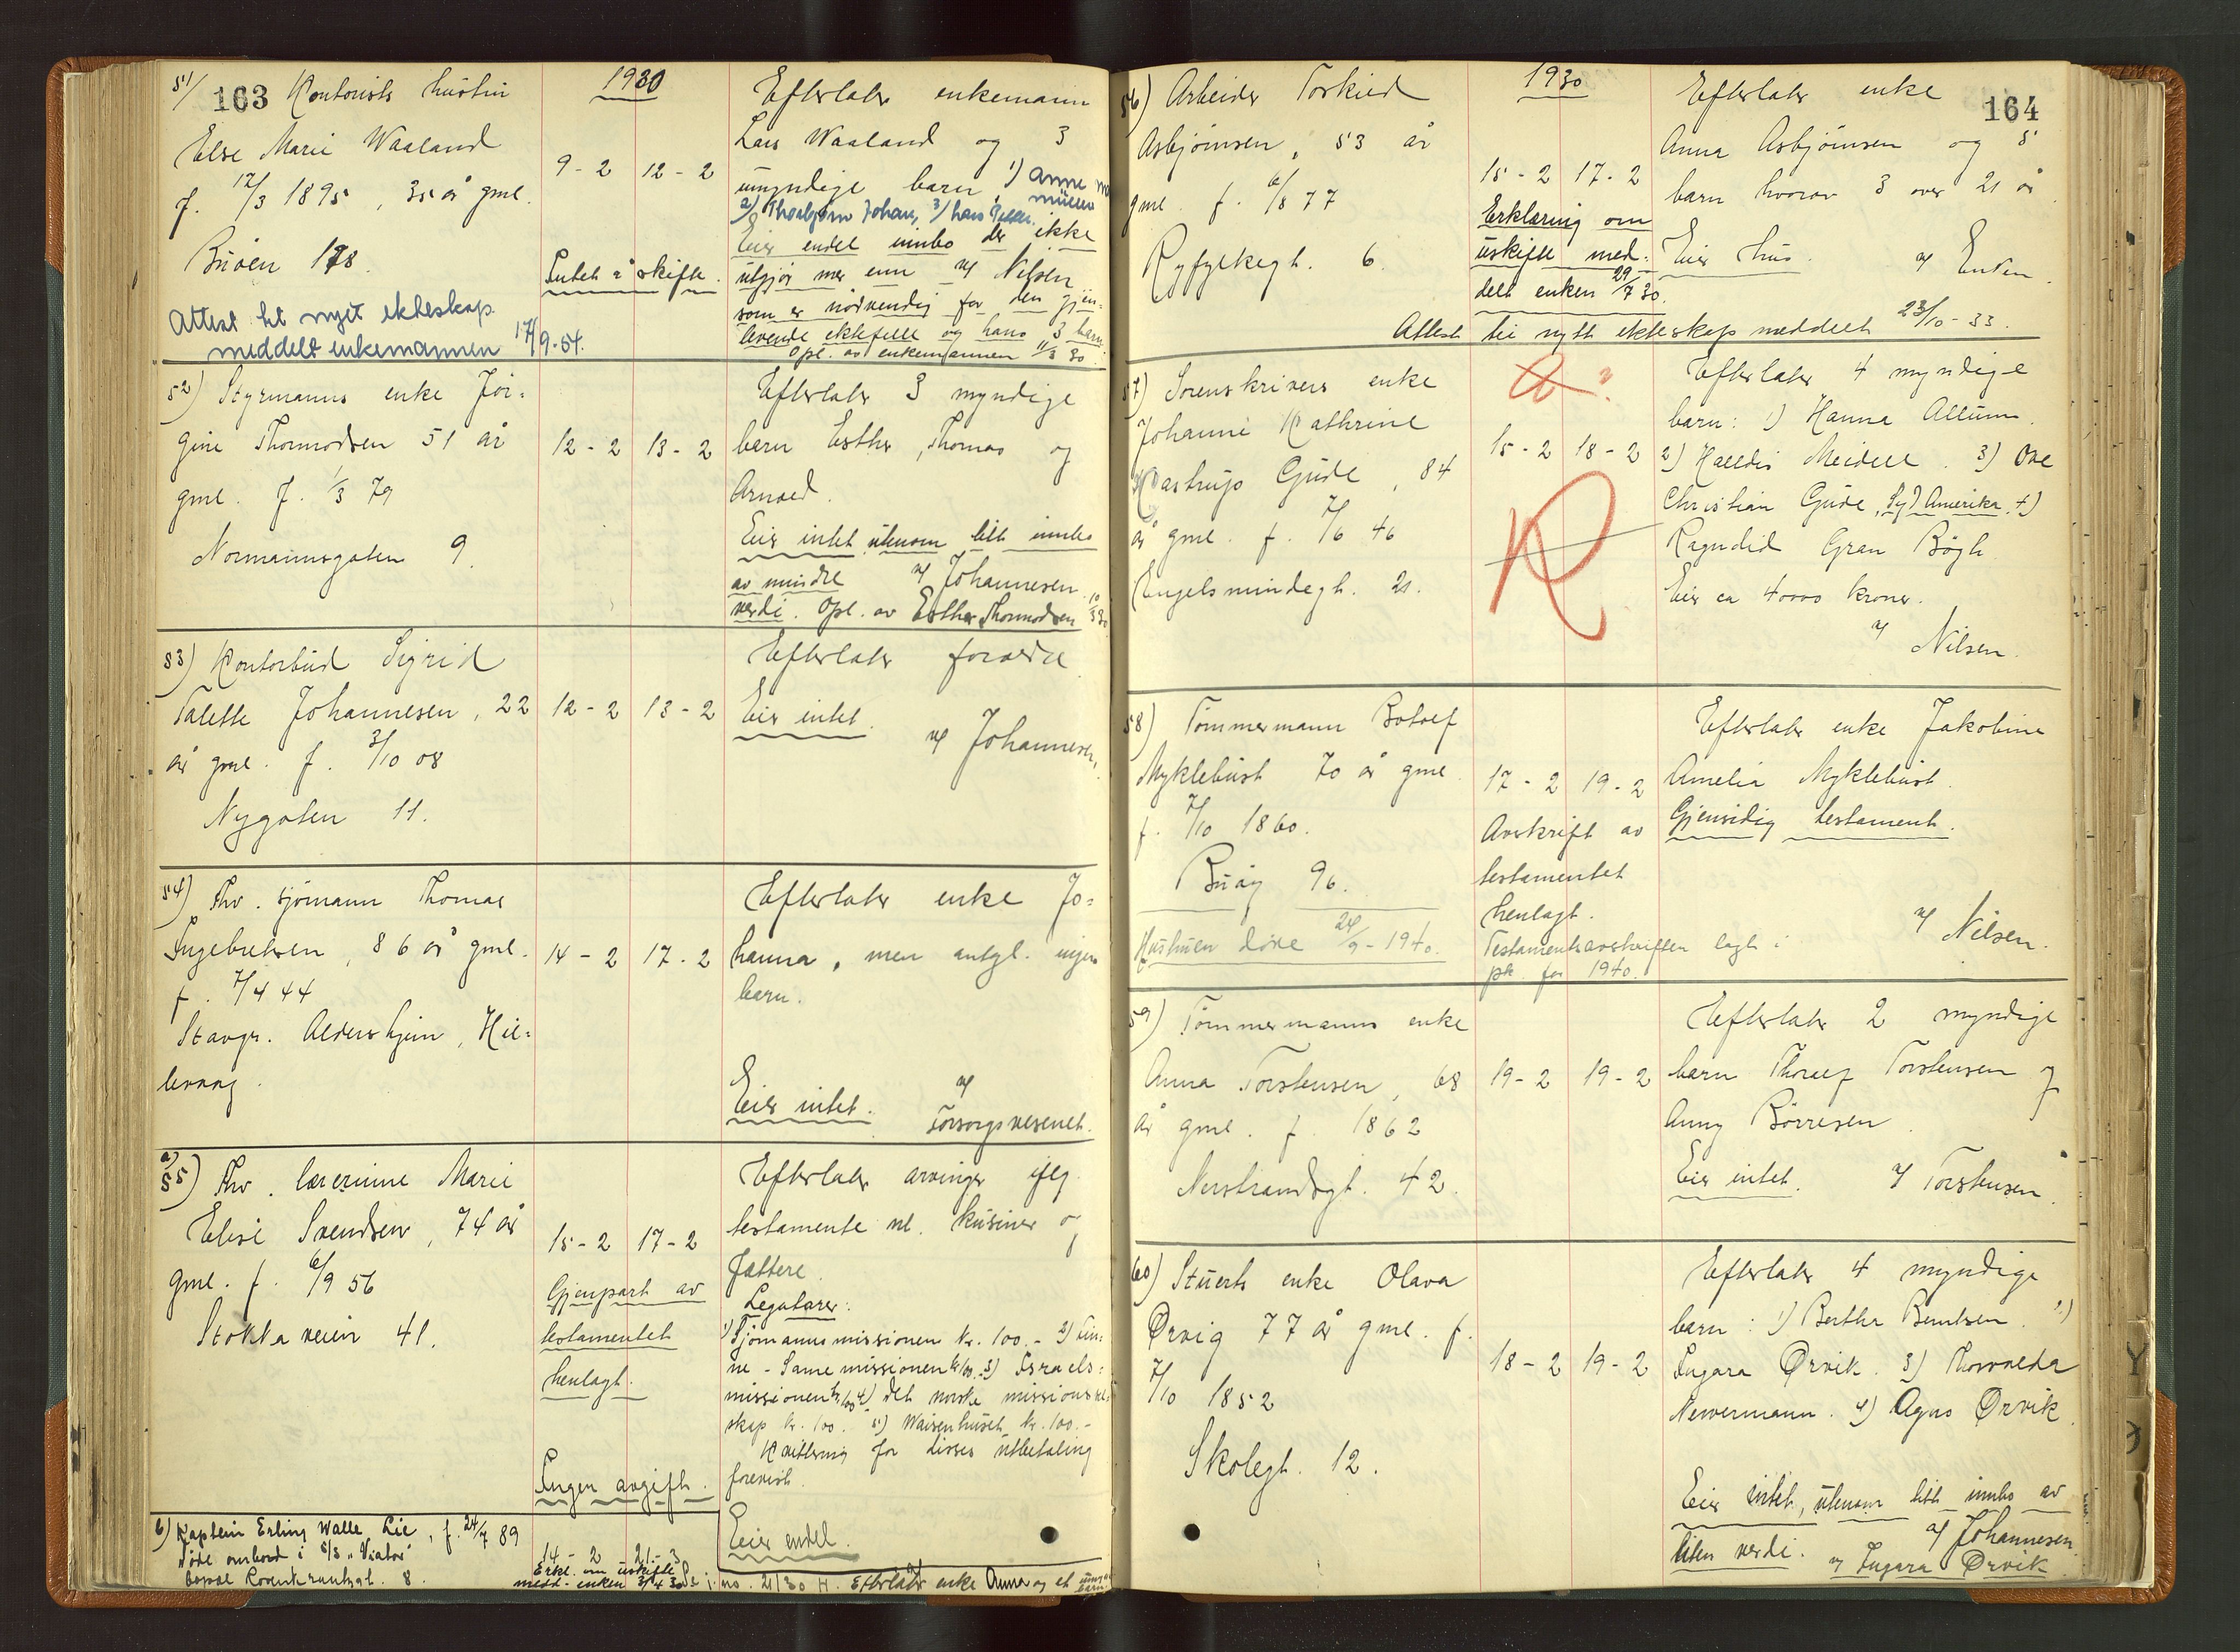 163
1930
51/ Kontorists hustru
Else Marie Waaland
f. 12/3 1895, 35 år gml.
Buøen 178.
Attest til nyet ekteskap
meddelt enkemannen 17/9-54.
9-2 12-2
Intet å skifte.
Efterlater enkemann
Lars Waaland og 3
umyndige barn 1) Anne
2) Thorbjørn Johan, 3)
Eier endel innbo der ikke
utgjør mer enn v/ Nilsen
som er nødvendig for den gjen-
levende ektefelle og hans 3 barn.
Opl. av enkemannen 11/3 30.
52) Styrmanns enke Jør-
gine Thormodsen 51 år
gml. f. 1/3 79
Normannsgaten 9.
12-2 13-2
Efterlater 3 myndige
barn Esther, Thomas og
Arnold.
Eier intet utenom litt innbo
av mindre v/ Johannesen
verdi. Opl. av Esther Thormodsen 10/3 30
53) Kontorbud Sigrid
Talette Johannesen, 22
år gml. f. 3/10 08
Nygaten 11.
12-2 13-2
Efterlater foreldre
Eier intet.
v/ Johannesen.
54) Fhv. sjømann Thomas
Ingebretsen, 86 år gml.
f. 7/4 44
Stavgr. Aldershjem, Hil-
levaag.
14-2 17-2
Efterlater enke Jo-
hanna, men antgl. ingen
barn.
Eier intet. v/
Forsorgsvesenet.
a)
55) Fhv. lærerinne Marie
Elise Svendsen, 74 år
gml. f. 6/9 56
Stokka veien 41.
15-2 17-2
Gjenpart av
testamentet
henlagt.
Ingen avgift.
Efterlater arvinger iflg.
testamente nl. kusiner og
fettere.
Legatarer:
1) Sjømannsmissionen kr. 100.- 2) Fin-
ne-Samemissionen kr 100. 3) Israels-
missionen kr 100 4) det norske missionssel-
skap kr. 100. 5) Waisenhuset kr. 100.-
Kvittering for disses utbetaling
forevist.
Eier endel.
b) Kaptein Erling Walle Lie, f. 24/7 89
døde ombord i S/S "Viator"
bopæl Rosenkrantzgt. 8.
14-2 21-3
Erkl. om uskifte
medd. enken 3/4 30 Se j.no. 21/30 H. Efterlater enke Anna og et
164
1930
56) Arbeider Torkild
Asbjørnsen, 53 år
gml. f. 6/8 77
Ryfylkegt. 6.
15-2 17-2
Erklæring om
uskifte med-
delt enken 29/7 30.
Efterlater enke
Anna Asbjørnsen og 5
barn hvorav 3 over 21 år
Eier hus. v/ Enken
Attest til nytt ekteskap meddelt 23/10-33.
57) Sorenskrivers enke
Johanne Kathrine
Kastrup Gude, 84
år gml. f. 7/6 46
Engelsmindegt. 21.
15-2 18-2
Efterlater 4 myndige
barn: 1) Hanna Allum
2) Halldis Meidell. 3) Ove
Christian Gude, Syd Amerika, 4)
Ragndid Gran Bøgh
Eier ca 40000 kroner.
v/
Nilsen.
58) Tømmermann Botolf
Myklebust 70 år gml
f. 7/10 1860.
Buøy 96.
Hustruen døde 24/9-1940.
17-2 19-2
Avskrift av
testamentet
henlagt.
Testamentsavskriften lagt i
pk. for 1940.
Efterlater enke Jakobine
Amelia Myklebust.
Gjensidig testament.
v/ Nilsen.
59) Tømmermanns enke
Anna Torstensen, 68
år gml. f. 1862
Nerstrandsgt. 42.
19-2 19-2
Efterlater 2 myndige
barn Thorleif Torstensen og
Anny Børresen.
Eier intet. v/ Torstensen.
60) Stuerts enke Olava
Ørvig 77 år gml. f.
7/10 1852
Skolegt. 12.
18-2 19-2
Efterlater 4 myndige
barn: 1) Berthe Bentsen. 2)
Ingara Ørvik. 3) Thorvalda
Nevermann. 4) Agnes Ørvik.
Eier intet, utenom litt innbo av
liten verdi. v/ Johannesen
v/ Ingara Ørvik